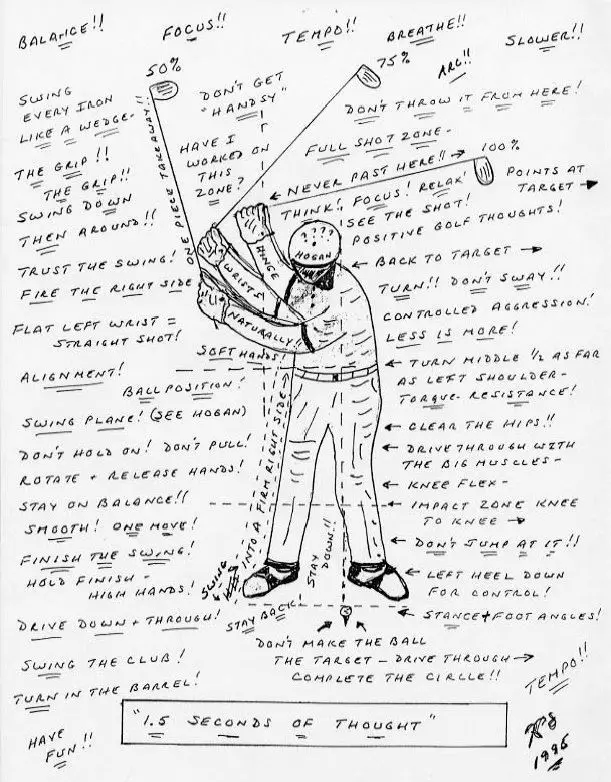 BALANCE!!
FOCUS!!
TEMPO!!
BREATHE!!
SLOWER!!
50%
75%
ARG!!
SWING
EVERY IRON
LIKE A WEDGE-
DON'T GET
"HANDSY"
DON'T THROW IT FROM HERE!
THE GRIP!!
THE GRIP!!
SWING DOWN
THEN AROUND!!
ONE PIECE TAKEAWAY!!
HAVE I
WORKED ON
THIS
ZONE?
FULL SHOT ZONE-
100%
← NEVER PAST HERE!! →
THINK! FOCUS! RELAX!
SEE THE SHOT!
POSITIVE GOLF THOUGHTS!
POINTS AT
TARGET →
TRUST THE SWING!
FIRE THE RIGHT SIDE
FLAT LEFT WRIST =
STRAIGHT SHOT!
????
HOGAN
WRISTS
HINGE
NATURALLY!!
SOFT HANDS!
← BACK TO TARGET →
TURN!! DON'T SWAY!!
CONTROLLED AGGRESSION!
LESS IS MORE!
ALIGNMENT!
BALL POSITION!
SWING PLANE! (SEE HOGAN)
DON'T HOLD ON! DON'T PULL!
ROTATE + RELEASE HANDS!
STAY ON BALANCE!!
SMOOTH! ONE MOVE!
FINISH THE SWING!
HOLD FINISH -
HIGH HANDS!
DRIVE DOWN + THROUGH!
SWING THE CLUB!
TURN IN THE BARREL!
HAVE
FUN!!
← TURN MIDDLE 1/2 AS FAR
AS LEFT SHOULDER-
TORQUE- RESISTANCE!
← CLEAR THE HIPS!!
← DRIVE THROUGH WITH
THE BIG MUSCLES-
← KNEE FLEX-
← IMPACT ZONE KNEE
TO KNEE →
← DON'T JUMP AT IT!!
← LEFT HEEL DOWN
FOR CONTROL!
← STANCE + FOOT ANGLES!
SWING
INTO A FIRM RIGHT SIDE →
STAY
DOWN!!
STAY BACK
DON'T MAKE THE BALL
THE TARGET - DRIVE THROUGH →
COMPLETE THE CIRCLE!!
TEMPO!!
"1.5 SECONDS OF THOUGHT"
1996